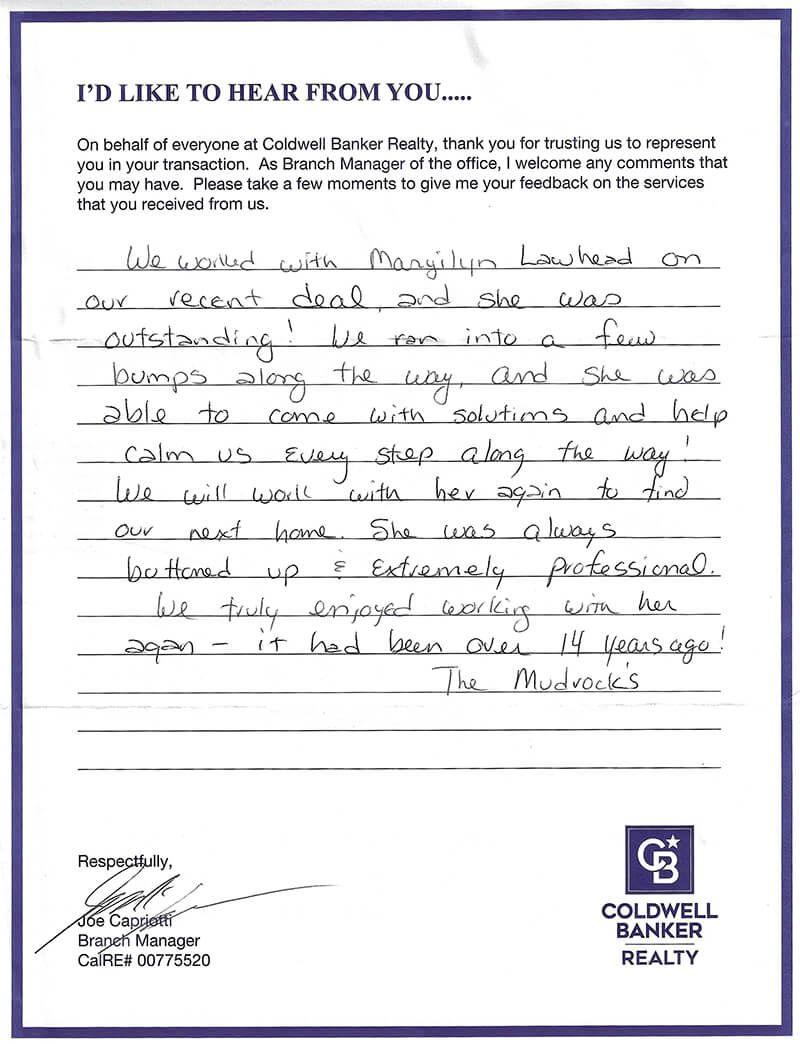 I'D LIKE TO HEAR FROM YOU.....
On behalf of everyone at Coldwell Banker Realty, thank you for trusting us to represent
you in your transaction. As Branch Manager of the office, I welcome any comments that
you may have. Please take a few moments to give me your feedback on the services
that you received from us.
We worked with Maryilyn Lawhead on
our recent deal, and she was
outstanding! We ran into a few
bumps along the way, and she was
able to come with solutions and help
calm us every step along the way!
We will work with her again to find
our next home. She was always
buttoned up & extremely professional.
We truly enjoyed working with her
again - it had been over 14 years ago!
The Mudrock's
Respectfully,
Joe Capriotti
Branch Manager
CalRE# 00775520
CB
COLDWELL
BANKER
REALTY